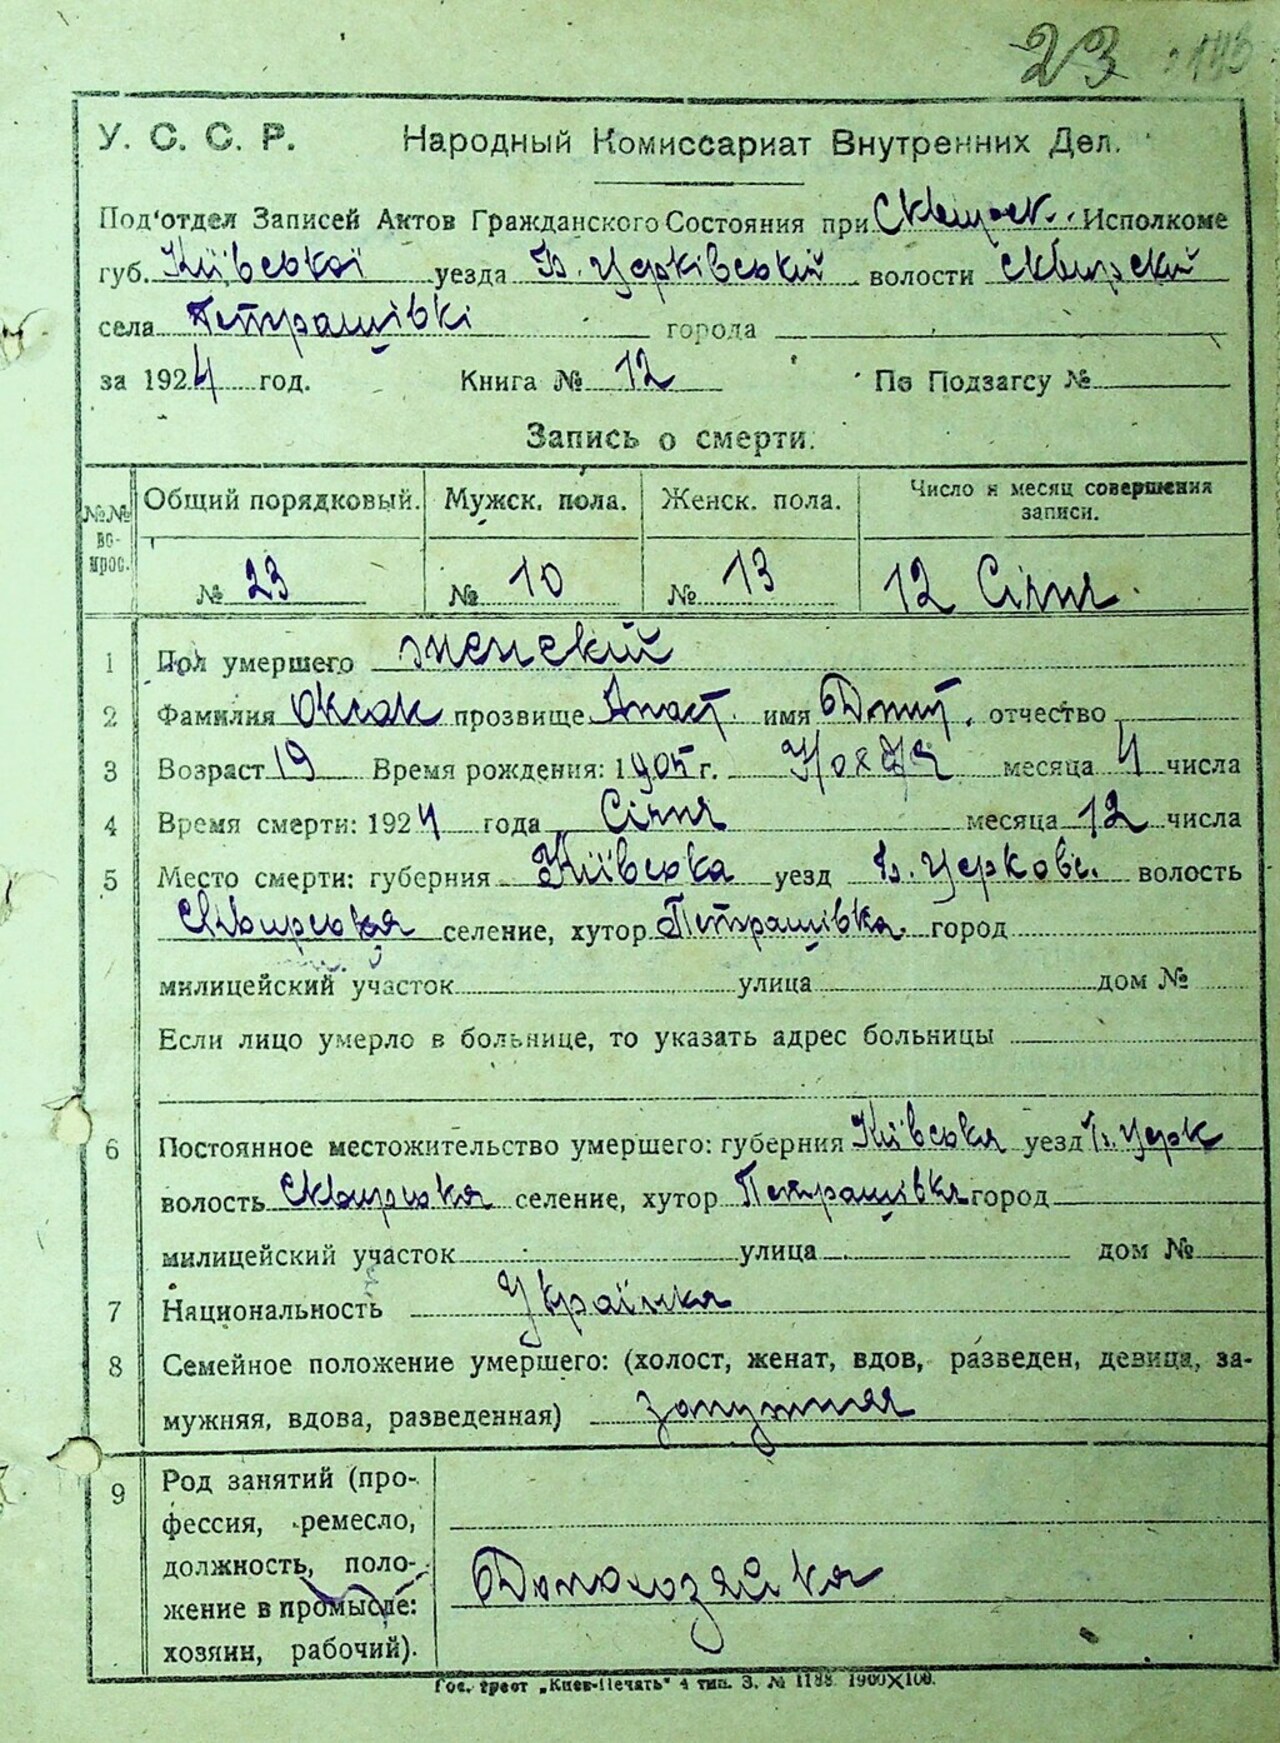 23
У. С. С. Р. Народный Комиссариат Внутренних Дел.
Под'отдел Записей Актов Гражданского Состояния при Сквирск. Исполкоме
губ. Київської уезда Б. Церківській волости Сквирский
села Петрашівкі города
за 1924 год. Книга № 12 По Подзагсу №
Запись о смерти.
№№ вопрос. Общий порядковый. Мужск. пола. Женск. пола. Число и месяц совершения записи.
№ 23 № 10 № 13 12 Січня.
1 Пол умершего женский
2 Фамилия прозвище Анаст. имя Дмит. отчество
3 Возраст 19 Время рождения: 1905 г. месяца 4 числа
4 Время смерти: 1924 года Січня месяца 12 числа
5 Место смерти: губерния Київська уезд Б. Церковс. волость
Сквирськая селение, хутор Петрашівка город
милицейский участок улица дом №
Если лицо умерло в больнице, то указать адрес больницы
6 Постоянное местожительство умершего: губерния Київська уезд Б. Церк
волость Сквирська селение, хутор Петрашівка город
милицейский участок улица дом №
7 Национальность Українка
8 Семейное положение умершего: (холост, женат, вдов, разведен, девица, за-
мужняя, вдова, разведенная) замужняя
9 Род занятий (про-
фессия, ремесло,
должность, поло-
жение в промысле:
хозяин, рабочий).
Домохозяйка
Гос. трест „Киев-Печать" 4 тип. З. № 1188 1900X100.